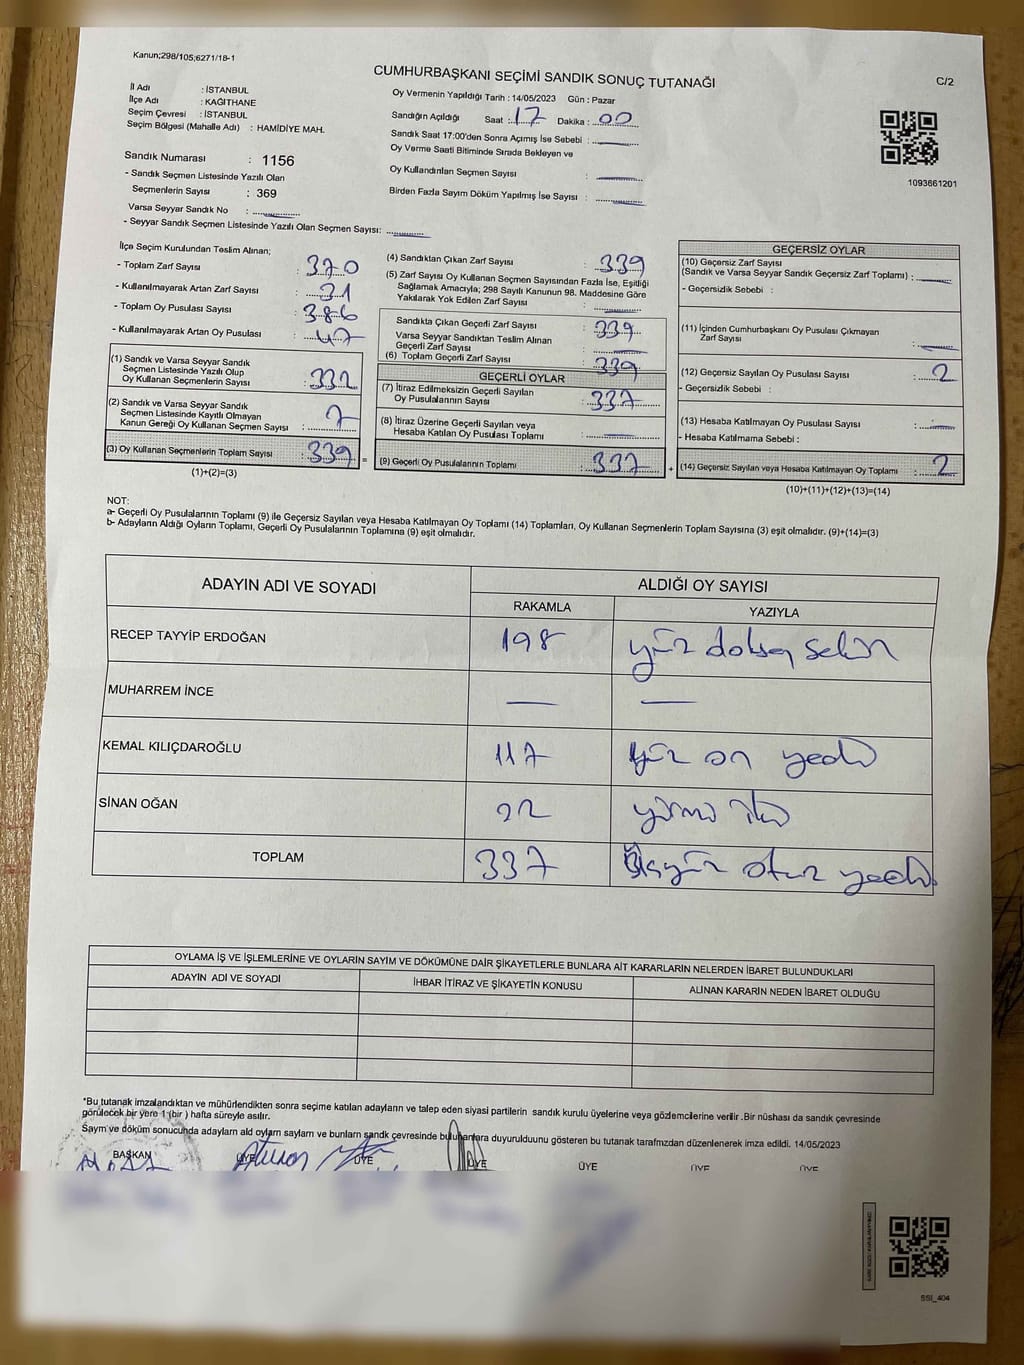 Kanun;298/105;6271/18-1
CUMHURBAŞKANI SEÇİMİ SANDIK SONUÇ TUTANAĞI
C/2
İl Adı : İSTANBUL
İlçe Adı : KAĞITHANE
Seçim Çevresi : İSTANBUL
Seçim Bölgesi (Mahalle Adı) : HAMİDİYE MAH.
Oy Vermenin Yapıldığı Tarih : 14/05/2023 Gün : Pazar
Sandığın Açıldığı Saat : 17 Dakika : 00
Sandık Saat 17:00'den Sonra Açımış İse Sebebi :
Oy Verme Saati Bitiminde Sırada Bekleyen ve
Oy Kullandırılan Seçmen Sayısı :
Birden Fazla Sayım Döküm Yapılmış İse Sayısı :
1093661201
Sandık Numarası : 1156
- Sandık Seçmen Listesinde Yazılı Olan
Seçmenlerin Sayısı : 369
Varsa Seyyar Sandık No :
- Seyyar Sandık Seçmen Listesinde Yazılı Olan Seçmen Sayısı:
İlçe Seçim Kurulundan Teslim Alınan;
- Toplam Zarf Sayısı : 370
- Kullanılmayarak Artan Zarf Sayısı : 31
- Toplam Oy Pusulası Sayısı : 386
- Kullanılmayarak Artan Oy Pusulası : 47
(1) Sandık ve Varsa Seyyar Sandık
Seçmen Listesinde Yazılı Olup
Oy Kullanan Seçmenlerin Sayısı : 332
(2) Sandık ve Varsa Seyyar Sandık
Seçmen Listesinde Kayıtlı Olmayan
Kanun Gereği Oy Kullanan Seçmen Sayısı : 7
(3) Oy Kullanan Seçmenlerin Toplam Sayısı : 339 =
(1)+(2)=(3)
(4) Sandıktan Çıkan Zarf Sayısı : 339
(5) Zarf Sayısı Oy Kullanan Seçmen Sayısından Fazla İse, Eşitliği
Sağlamak Amacıyla; 298 Sayılı Kanunun 98. Maddesine Göre
Yakılarak Yok Edilen Zarf Sayısı :
Sandıkta Çıkan Geçerli Zarf Sayısı : 339
Varsa Seyyar Sandıktan Teslim Alınan
Geçerli Zarf Sayısı :
(6) Toplam Geçerli Zarf Sayısı : 339
GEÇERLİ OYLAR
(7) İtiraz Edilmeksizin Geçerli Sayılan
Oy Pusulalarının Sayısı : 337
(8) İtiraz Üzerine Geçerli Sayılan veya
Hesaba Katılan Oy Pusulası Toplamı :
(9) Geçerli Oy Pusulalarının Toplamı : 337 +
GEÇERSİZ OYLAR
(10) Geçersiz Zarf Sayısı
(Sandık ve Varsa Seyyar Sandık Geçersiz Zarf Toplamı) :
- Geçersizlik Sebebi :
(11) İçinden Cumhurbaşkanı Oy Pusulası Çıkmayan
Zarf Sayısı :
(12) Geçersiz Sayılan Oy Pusulası Sayısı : 2
- Geçersizlik Sebebi :
(13) Hesaba Katılmayan Oy Pusulası Sayısı :
- Hesaba Katılmama Sebebi :
(14) Geçersiz Sayılan veya Hesaba Katılmayan Oy Toplamı : 2
(10)+(11)+(12)+(13)=(14)
NOT:
a- Geçerli Oy Pusulalarının Toplamı (9) ile Geçersiz Sayılan veya Hesaba Katılmayan Oy Toplamı (14) Toplamları, Oy Kullanan Seçmenlerin Toplam Sayısına (3) eşit olmalıdır. (9)+(14)=(3)
b- Adayların Aldığı Oyların Toplamı, Geçerli Oy Pusulalarının Toplamına (9) eşit olmalıdır.
ADAYIN ADI VE SOYADI ALDIĞI OY SAYISI
RAKAMLA YAZIYLA
RECEP TAYYİP ERDOĞAN 198 yüz doksan sekiz
MUHARREM İNCE — —
KEMAL KILIÇDAROĞLU 117 yüz on yedi
SİNAN OĞAN 22 yirmi iki
TOPLAM 337 Üçyüz otuz yedi
OYLAMA İŞ VE İŞLEMLERİNE VE OYLARIN SAYIM VE DÖKÜMÜNE DAİR ŞİKAYETLERLE BUNLARA AİT KARARLARIN NELERDEN İBARET BULUNDUKLARI
ADAYIN ADI VE SOYADI İHBAR İTİRAZ VE ŞİKAYETİN KONUSU ALINAN KARARIN NEDEN İBARET OLDUĞU
*Bu tutanak imzalandıktan ve mühürlendikten sonra seçime katılan adayların ve talep eden siyasi partilerin sandık kurulu üyelerine veya gözlemcilerine verilir .Bir nüshası da sandık çevresinde
görülecek bir yere 1 (bir ) hafta süreyle asılır.
Sayım ve döküm sonucunda adayların ald oyların sayların ve bunların sandk çevresinde bulunanlara duyurulduunu gösteren bu tutanak tarafmzdan düzenlenerek imza edildi. 14/05/2023
BAŞKAN ÜYE ÜYE ÜYE ÜYE ÜYE ÜYE
SSI_404